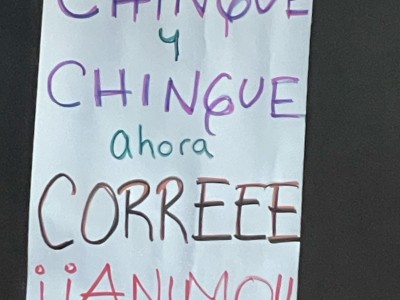 CHINGUE
y
CHINGUE
ahora
CORREEE
¡¡ANIMO!!